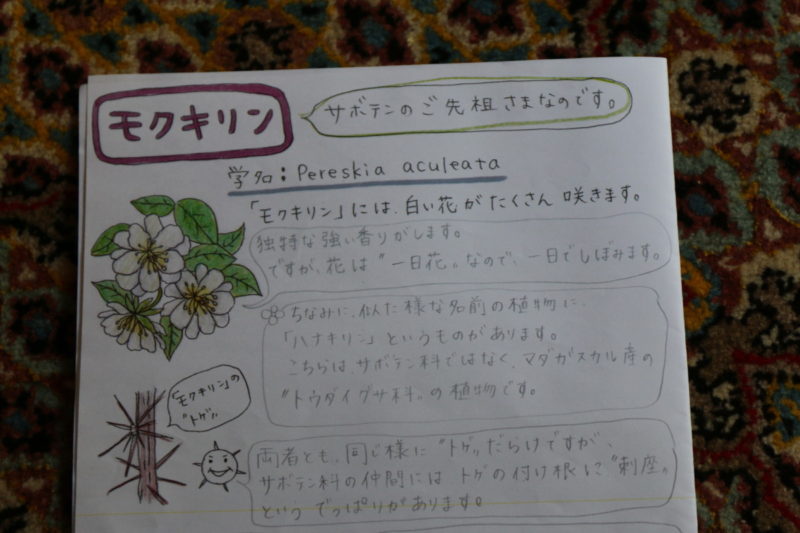 モクキリン
サボテンのご先祖さまなのです。
学名：Pereskia aculeata
「モクキリン」には、白い花がたくさん咲きます。
独特な強い香りがします。
ですが、花は〝一日花〟なので、一日でしぼみます。
ちなみに、似た様な名前の植物に、
「ハナキリン」というものがあります。
こちらは、サボテン科ではなく、マダガスカル産の
〝トウダイグサ科〟の植物です。
「モクキリン」の
〝トゲ〟
両者とも、同じ様に〝トゲ〟だらけですが、
サボテン科の仲間には トゲの付け根に〝刺座〟
という でっぱりがあります。